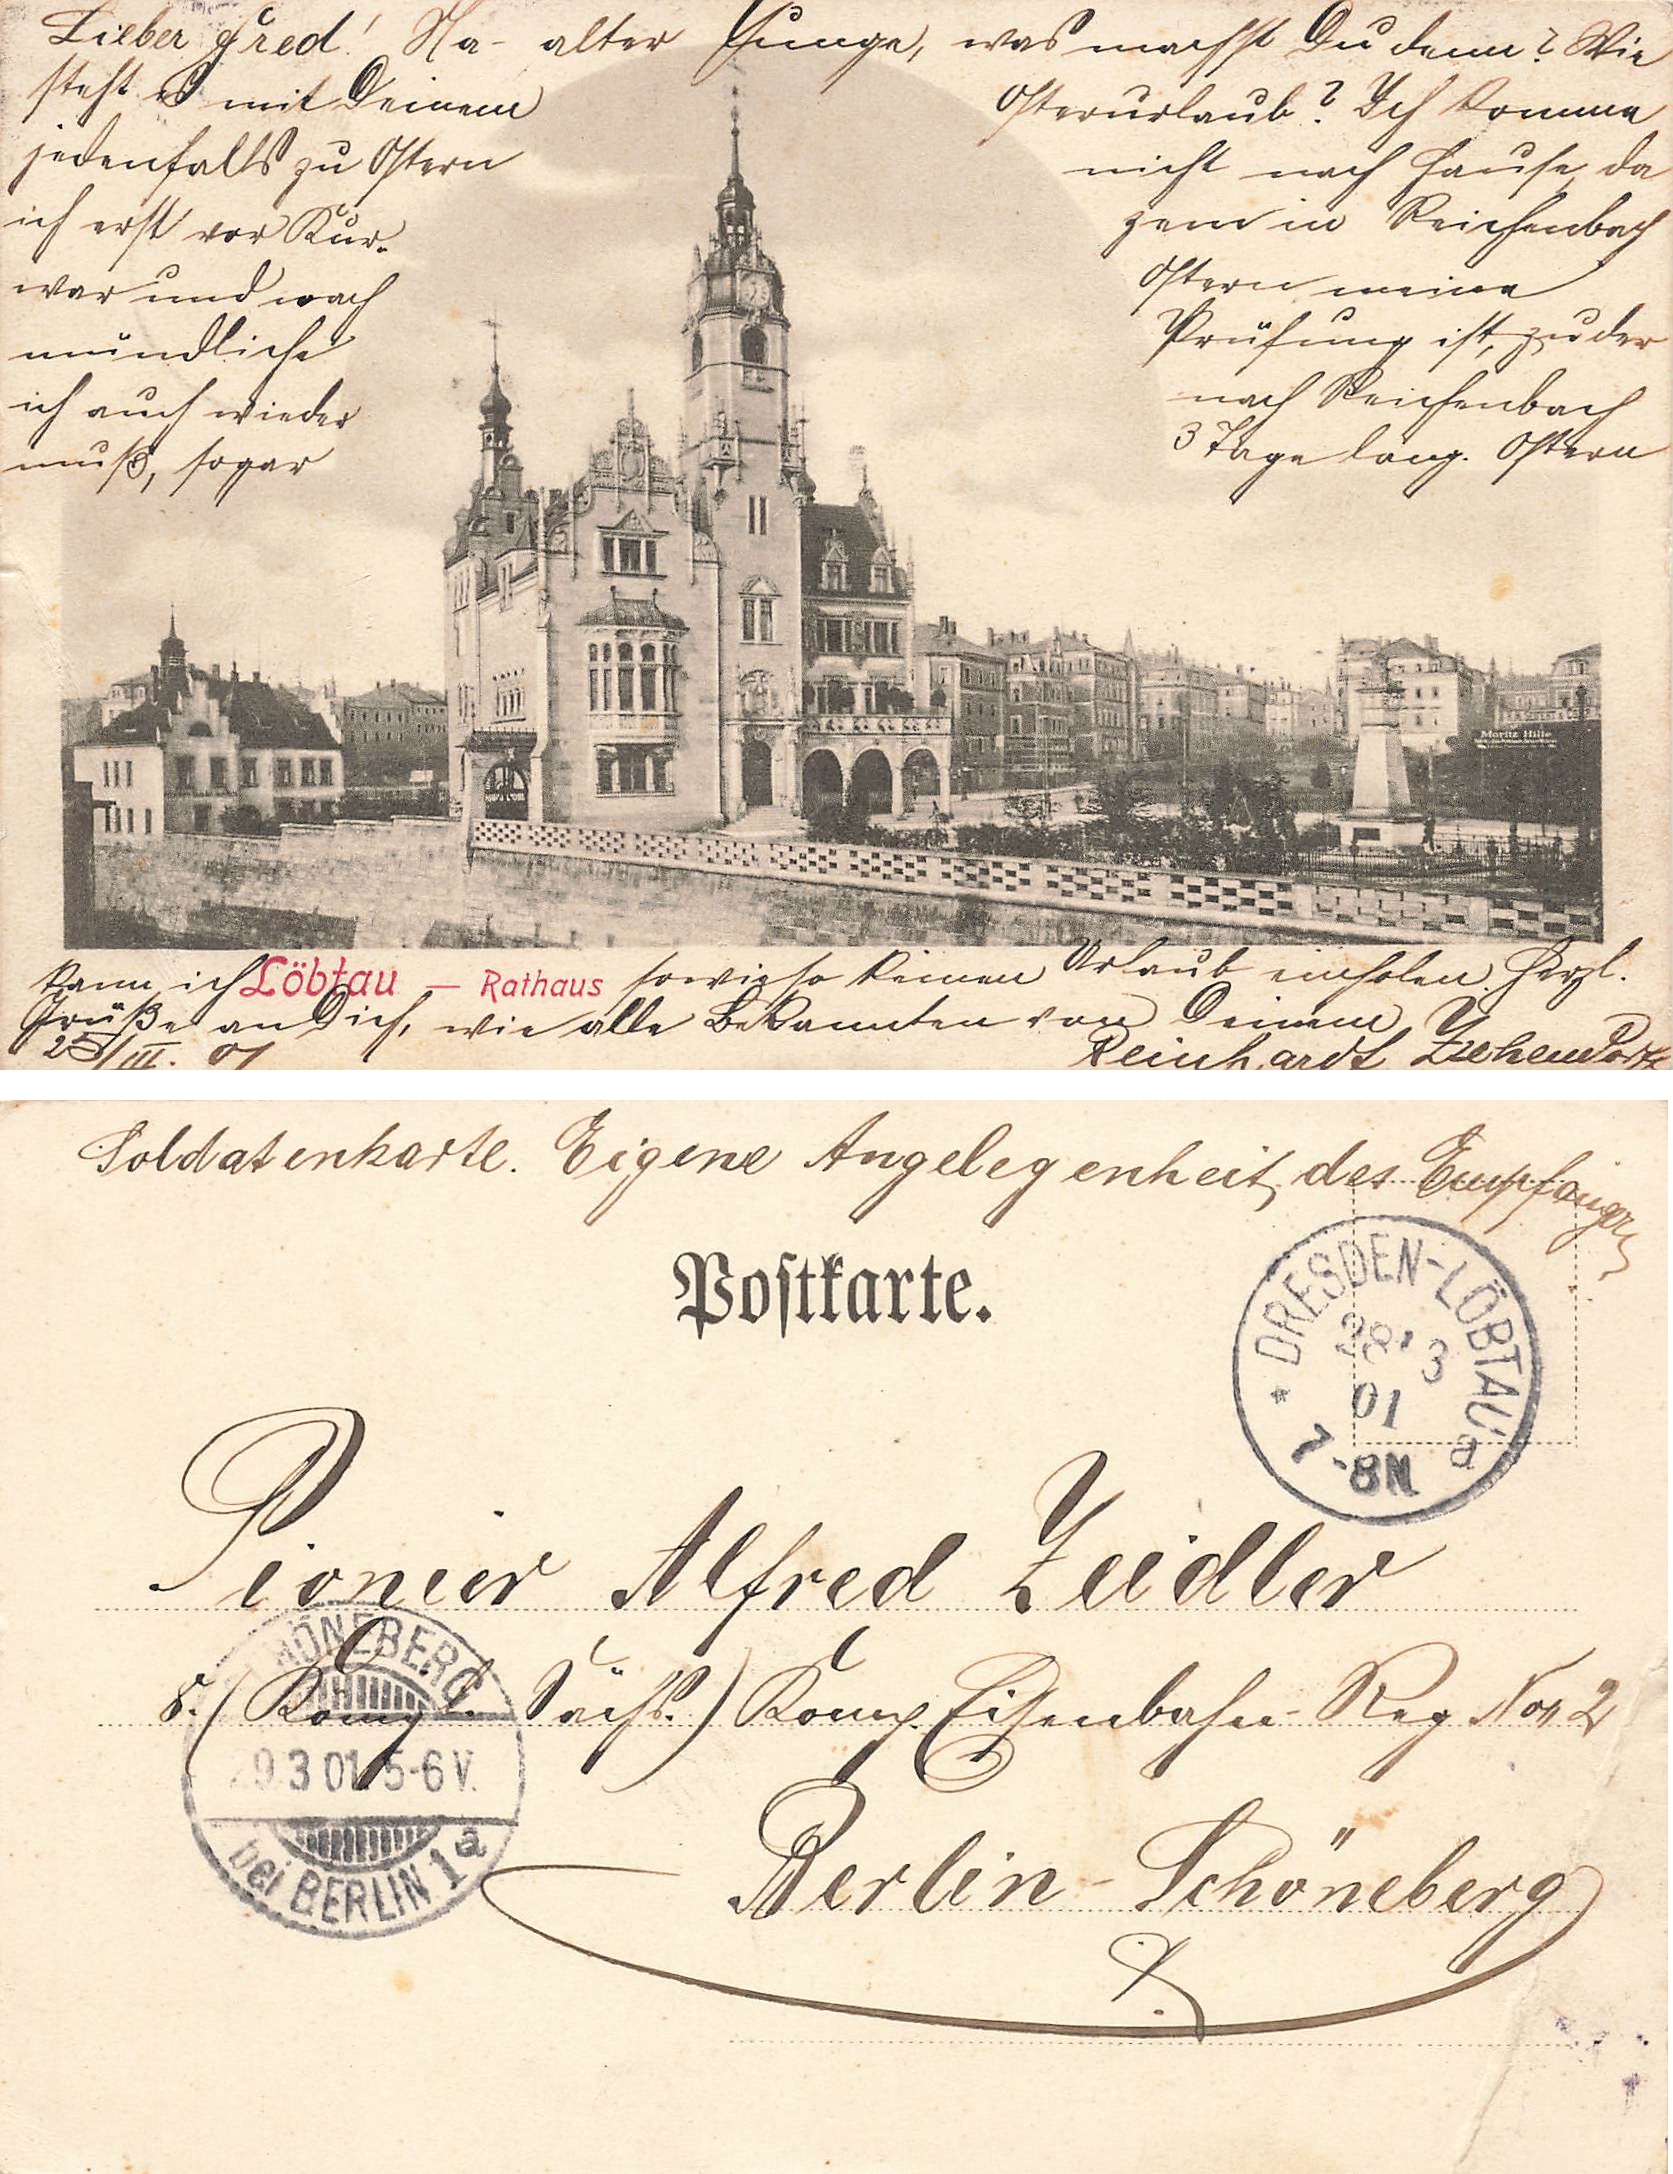 Lieber Fred! Na- alter Junge, was machst Du denn? Wie
steht es mit Deinem Osterurlaub? Ich komme
jedenfalls zu Ostern nicht nach Hause, da
ich erst vor Kur- zem in Reichenbach
war und nach Ostern meine
mündliche Prüfung ist, zu der
ich auch wieder nach Reichenbach
muß, sogar 3 Tage lang. Ostern
kann ich sowieso keinen Urlaub einholen. Herzl.
Löbtau — Rathaus
Grüße an Dich, wie alle Bekannten von Deinem
25/III. 01 Reinhardt
Moritz Hille
Soldatenkarte. Eigene Angelegenheit des Empfängers
Postkarte.
DRESDEN-LÖBTAU a
28 3
01
7-8N
Pionier Alfred Zeidler
8. (Königl. Sächs.) Komp. Eisenbahn-Reg No. 2
SCHÖNEBERG
29 3 01 5-6V.
bei BERLIN 1a
Berlin-Schöneberg